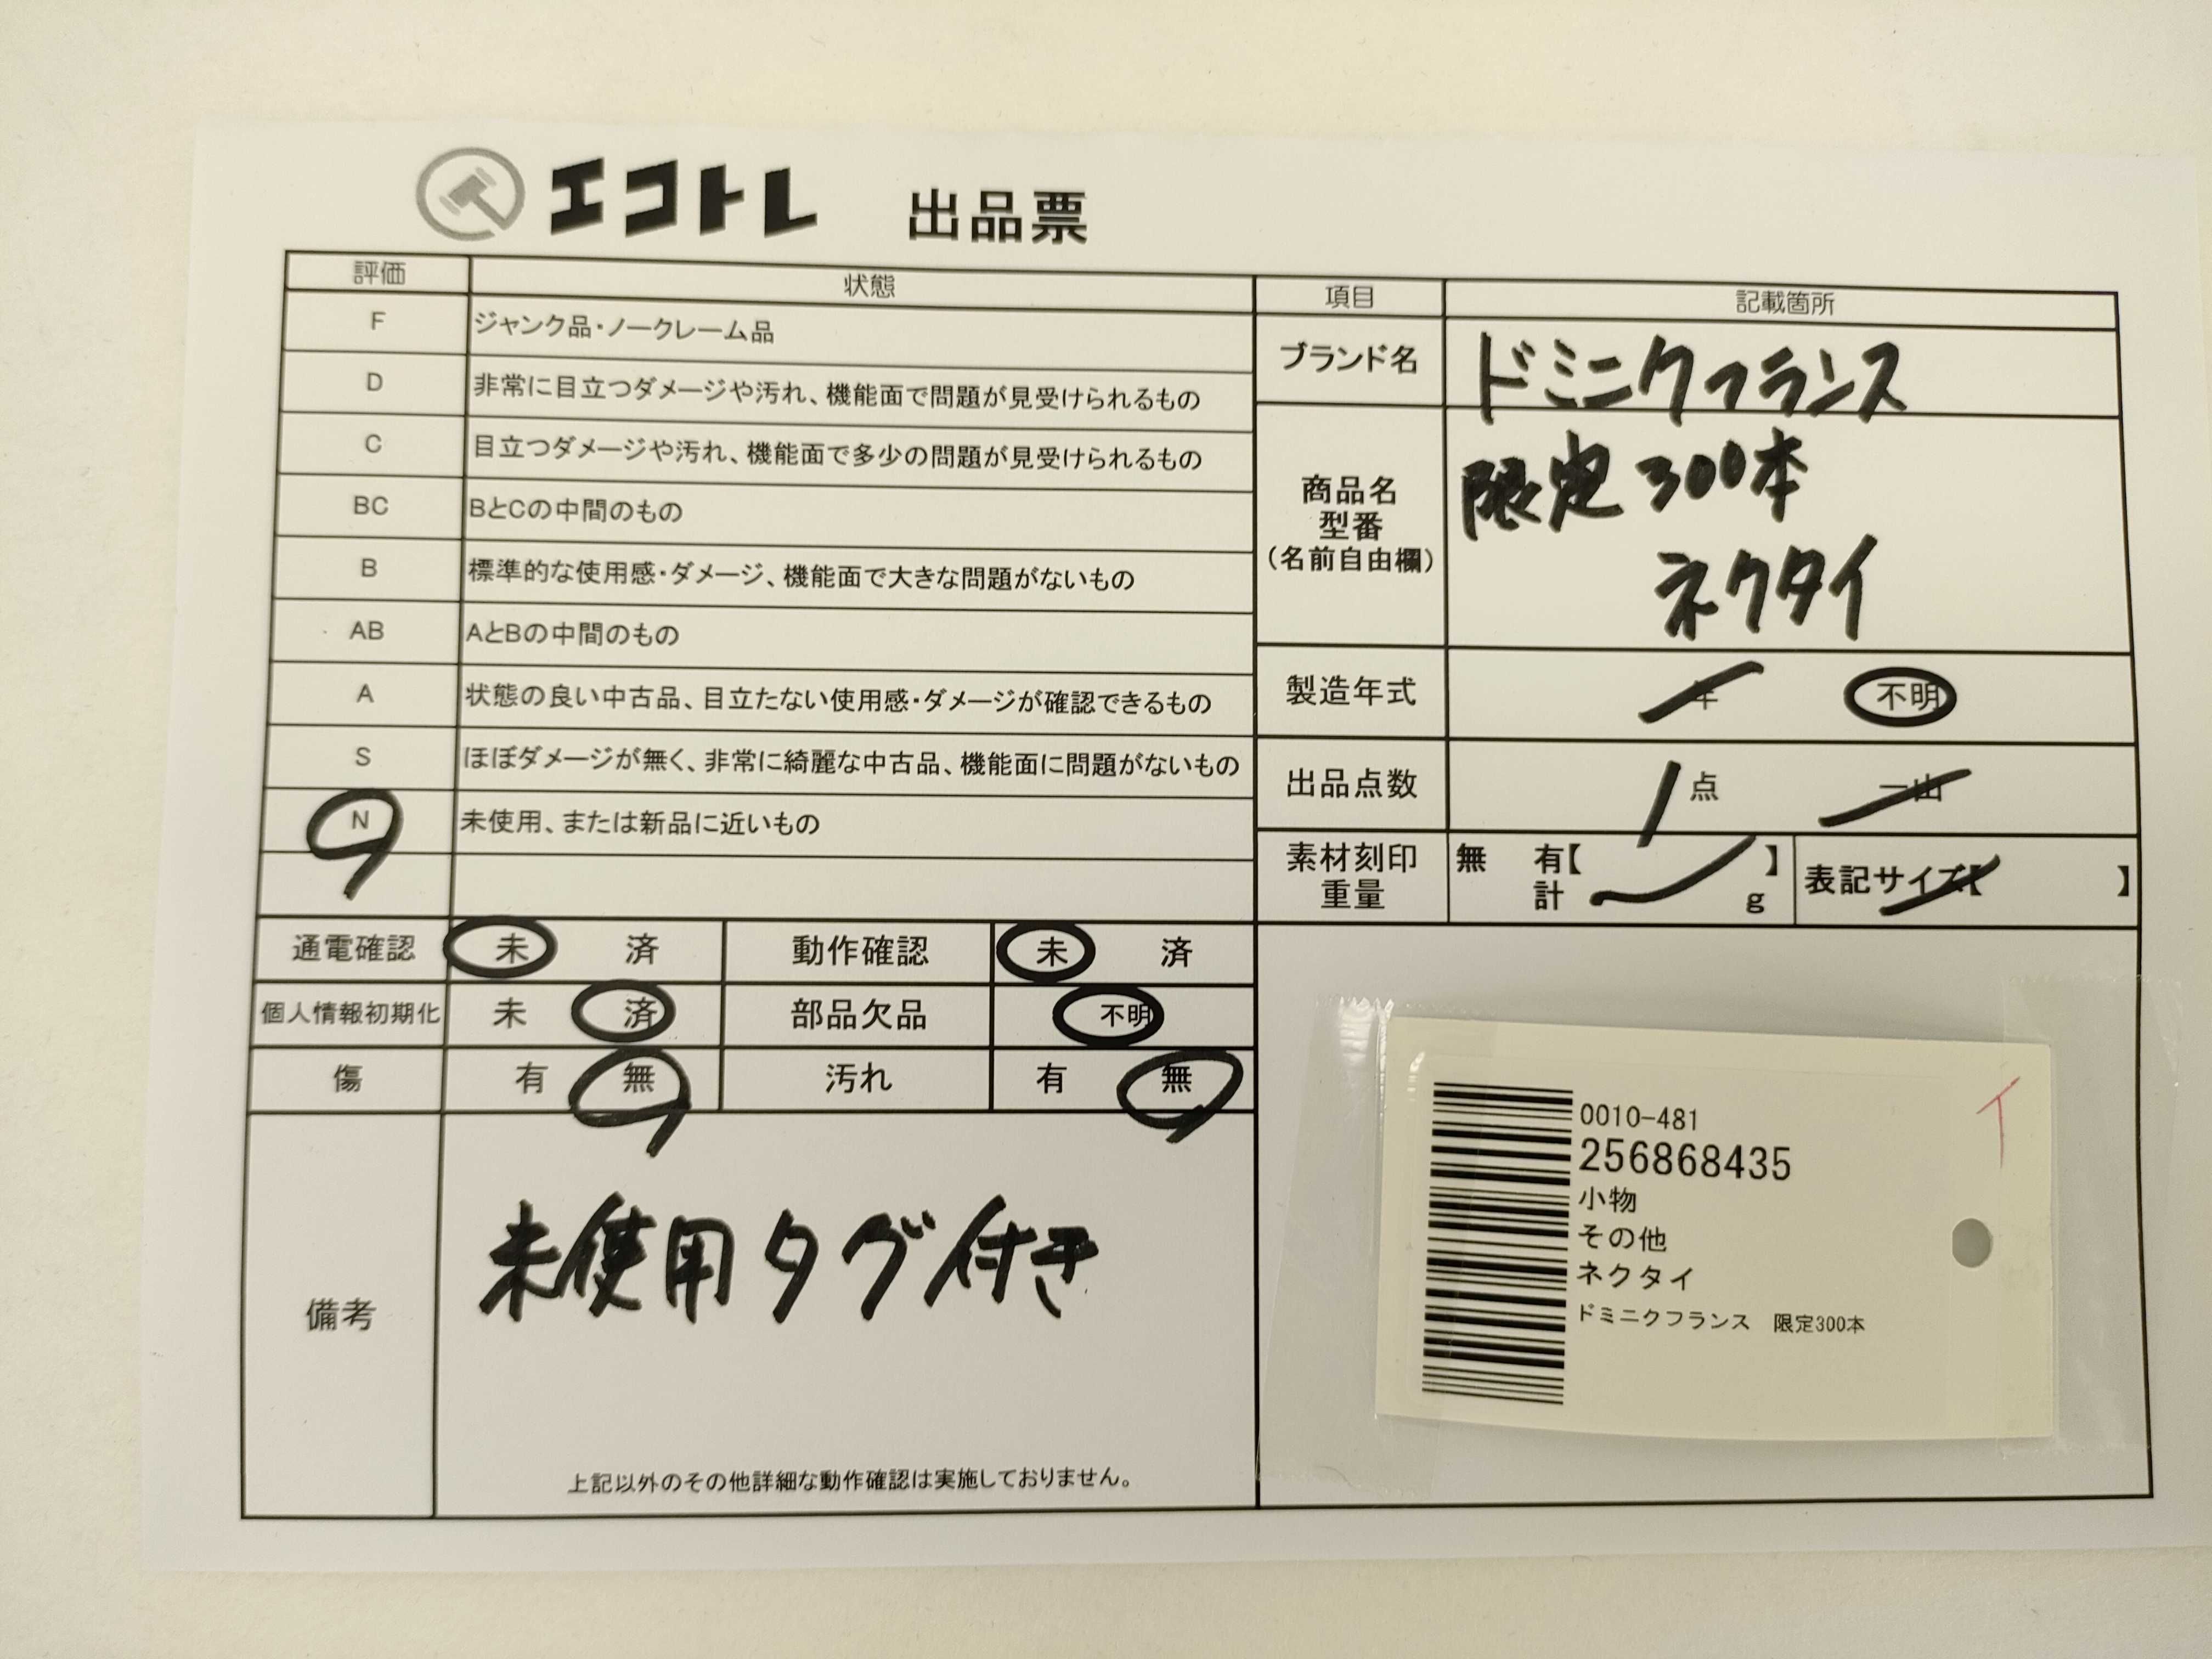 エコトレ 出品票
評価 状態
F ジャンク品・ノークレーム品
D 非常に目立つダメージや汚れ、機能面で問題が見受けられるもの
C 目立つダメージや汚れ、機能面で多少の問題が見受けられるもの
BC BとCの中間のもの
B 標準的な使用感・ダメージ、機能面で大きな問題がないもの
AB AとBの中間のもの
A 状態の良い中古品、目立たない使用感・ダメージが確認できるもの
S ほぼダメージが無く、非常に綺麗な中古品、機能面に問題がないもの
N 未使用、または新品に近いもの
通電確認 未 済 動作確認 未 済
個人情報初期化 未 済 部品欠品 不明
傷 有 無 汚れ 有 無
備考 未使用タグ付き
上記以外のその他詳細な動作確認は実施しておりません。
項目 記載箇所
ブランド名 ドミニクフランス
商品名
型番
(名前自由欄)
限定300本
ネクタイ
製造年式 年 不明
出品点数 1点 一山
素材刻印 無 有【 】
重量 計 g
表記サイズ【 】
0010-481
256868435
小物
その他
ネクタイ
ドミニクフランス 限定300本
イ